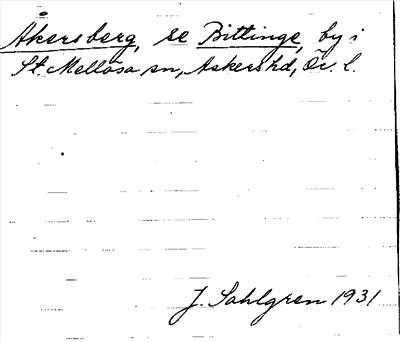 Åkersberg, se Bittinge, by i
St. Mellösa sn, Askers hd, Ör. l.
J. Sahlgren 1931